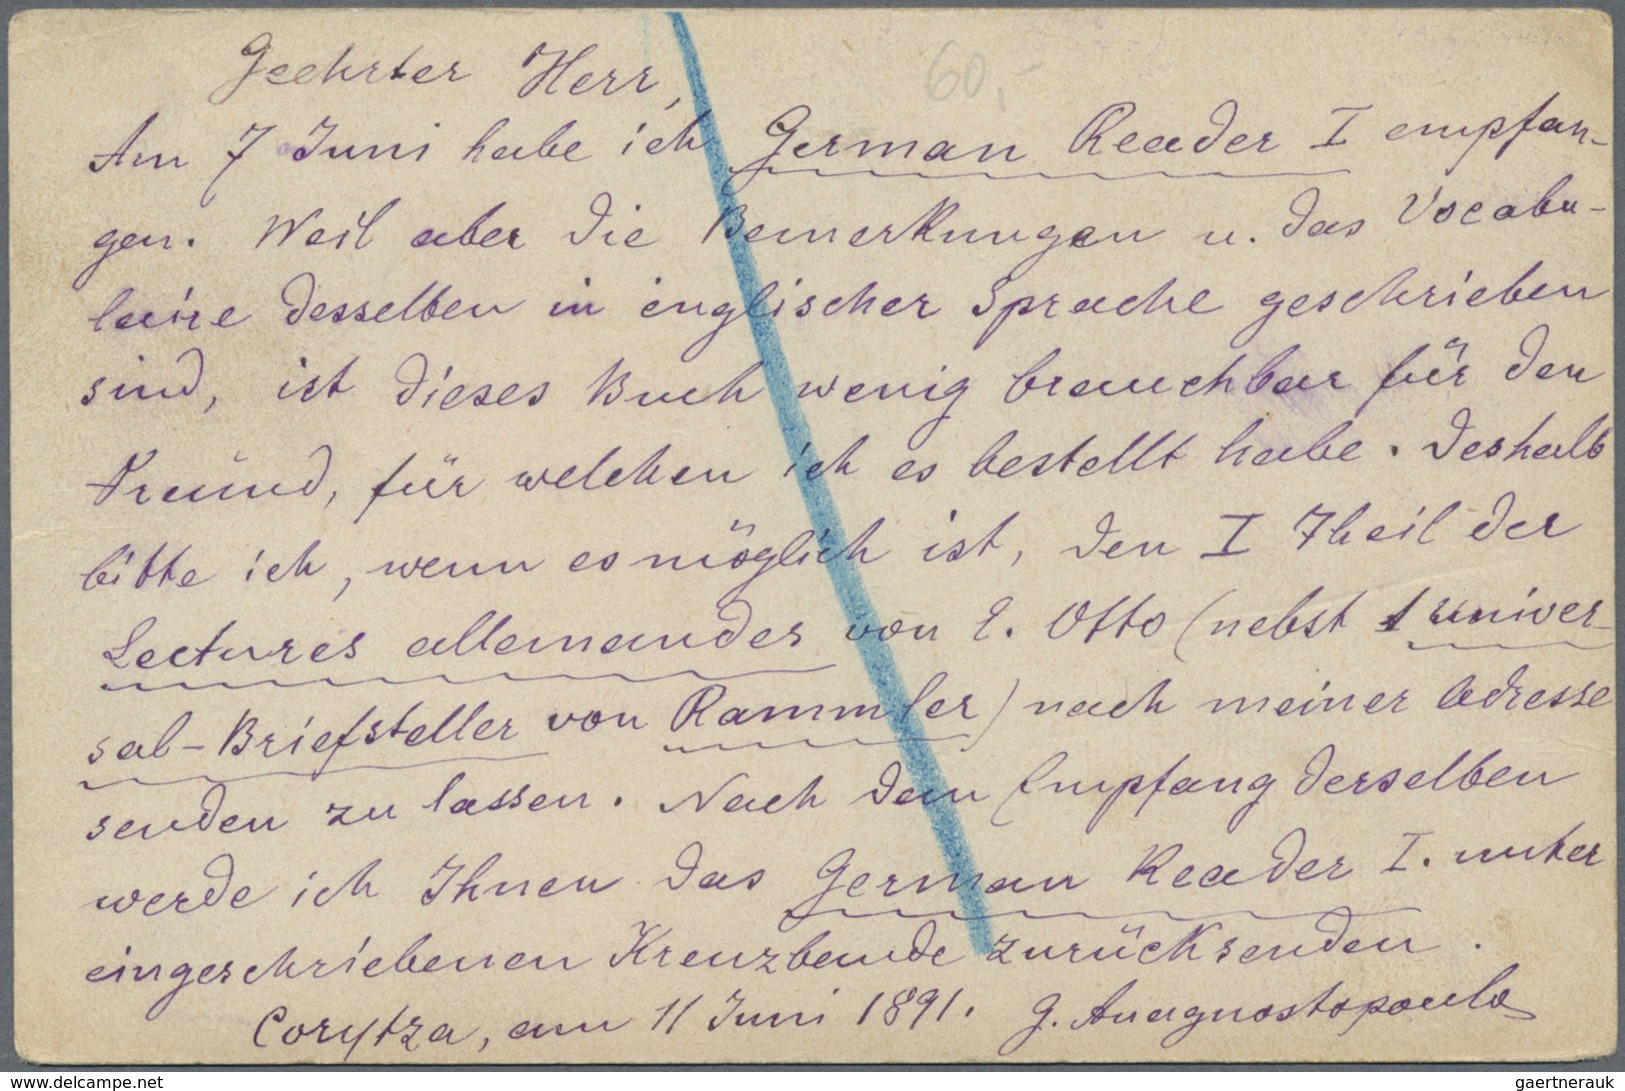 Geehrter Herr,
60,-
Am 7 Juni habe ich German Reader I empfan-
gen. Weil aber die Bemerkungen u. das Vocabu-
laire desselben in englischer Sprache geschrieben
sind, ist dieses Buch wenig brauchbar für den
Freund, für welchen ich es bestellt habe. Deshalb
bitte ich, wenn es möglich ist, den I Theil der
Lectures allemandes von E. Otto (nebst 1 Univer-
sal-Briefsteller von Rammler) nach meiner Adresse
senden zu lassen. Nach dem Empfang derselben
werde ich Ihnen das German Reader I. unter
eingeschriebenen Kreuzbande zurücksenden.
Corytza, am 11 Juni 1891. G. Anagnostopoulo
www.delcampe.net
gaertnerauk